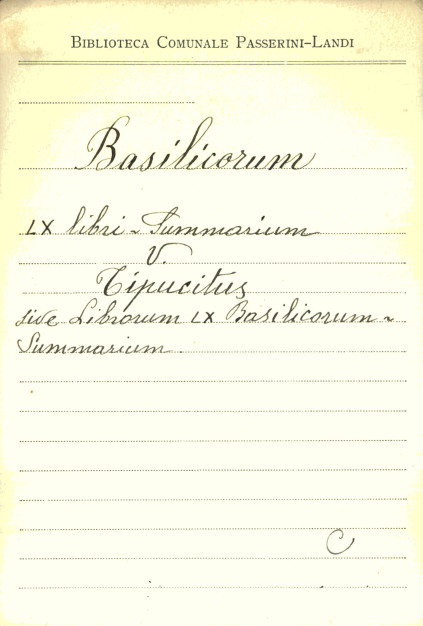 BIBLIOTECA COMUNALE PASSERINI-LANDI
Basilicorum
LX libri ~ Summarium
V.
Tipucitus
sive Librorum LX Basilicorum ~
Summarium.
C